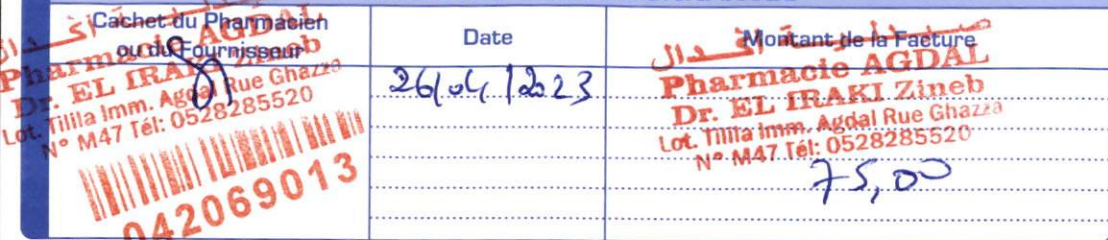 Cachet du Pharmacien
ou du Fournisseur
Date
Montant de la Facture
Pharmacie AGDAL
Dr. EL IRAKI Zineb
Lot. Tilila Imm. Agdal Rue Ghazza
N° M47 Tél: 0528285520
042069013
26/04/2023
Pharmacie AGDAL
Dr. EL IRAKI Zineb
Lot. Tilila Imm. Agdal Rue Ghazza
N° M47 Tél: 0528285520
75,00